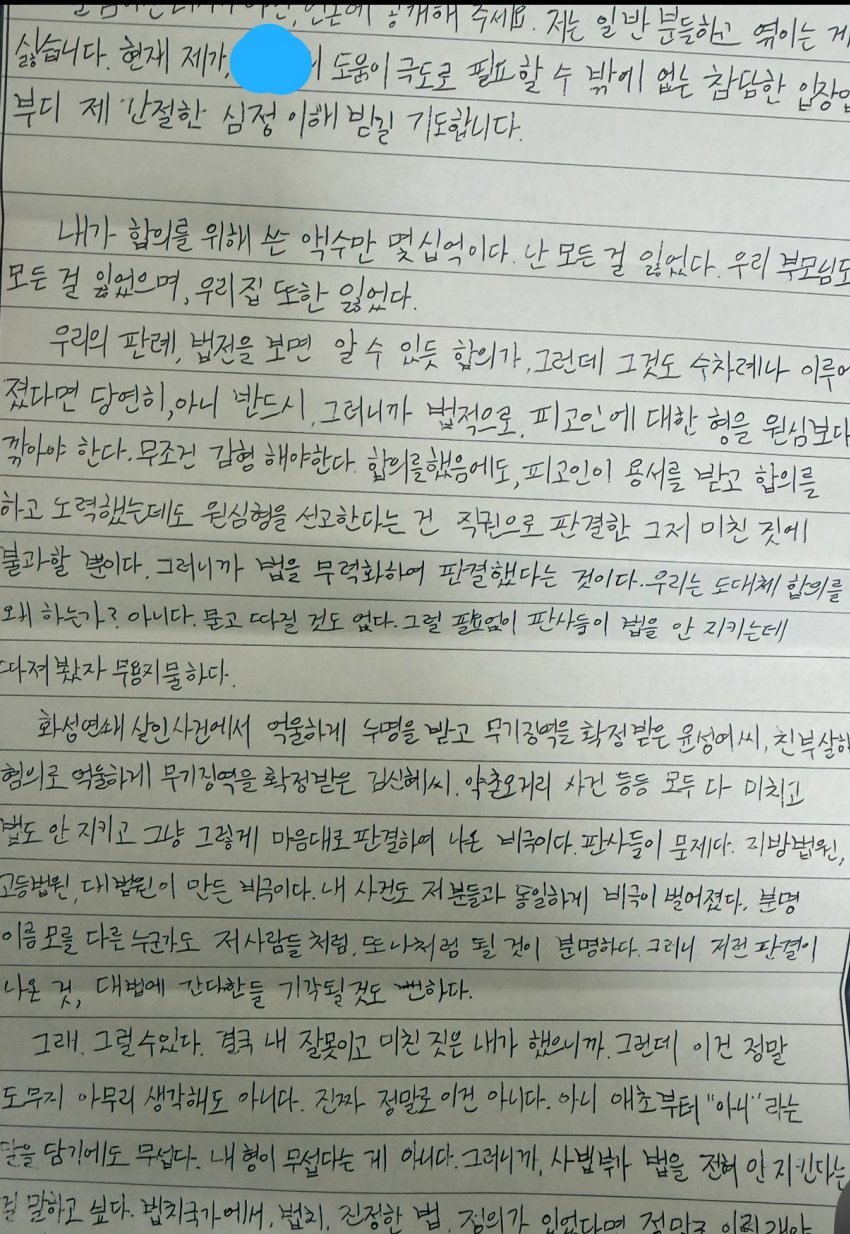 언론에 공개해 주세요. 저는 일반 분들하고 엮이는 게
싫습니다. 현재 제가, 도움이 극도로 필요할 수 밖에 없는 참담한 입장입
부디 제 간절한 심정 이해 받길 기도합니다.
내가 합의를 위해 쓴 액수만 몇십억이다. 난 모든 걸 잃었다. 우리 부모님도
모든 걸 잃었으며, 우리집 또한 잃었다.
우리의 판례, 법전을 보면 알 수 있듯 합의가, 그런데 그것도 수차례나 이루어
졌다면 당연히, 아니 반드시, 그러니까 법적으로, 피고인에 대한 형을 원심보다
깎아야 한다. 무조건 감형 해야한다. 합의를했음에도, 피고인이 용서를 받고 합의를
하고 노력했는데도 원심형을 선고한다는 건 직권으로 판결한 그저 미친 짓에
불과할 뿐이다. 그러니까 법을 무력화하여 판결했다는 것이다. 우리는 도대체 합의를
왜 하는가? 아니다. 묻고 따질 것도 없다. 그럴 필요없이 판사들이 법을 안 지키는데
따져봤자 무용지물하다.
화성연쇄 살인사건에서 억울하게 누명을 받고 무기징역을 확정받은 윤성여씨, 친부살해
혐의로 억울하게 무기징역을 확정받은 김신혜씨. 약촌오거리 사건 등등 모두 다 미치고
법도 안 지키고 그냥 그렇게 마음대로 판결하여 나온 비극이다. 판사들이 문제다. 지방법원,
고등법원, 대법원이 만든 비극이다. 내 사건도 저 분들과 동일하게 비극이 벌어졌다. 분명
이름 모를 다른 누군가도 저 사람들 처럼, 또 나처럼 될 것이 분명하다. 그러니 저런 판결이
나온 것, 대법에 간다한들 기각될것도 뻔하다.
그래. 그럴수있다. 결국 내 잘못이고 미친 짓은 내가 했으니까. 그런데 이건 정말
도무지 아무리 생각해도 아니다. 진짜 정말로 이건 아니다. 아니 애초부터 "아니"라는
말을 담기에도 무섭다. 내 형이 무섭다는 게 아니다. 그러니까, 사법부가 법을 전혀 안 지킨다는
걸 말하고 싶다. 법치국가에서, 법치, 진정한 법, 정의가 있었다면 정말로